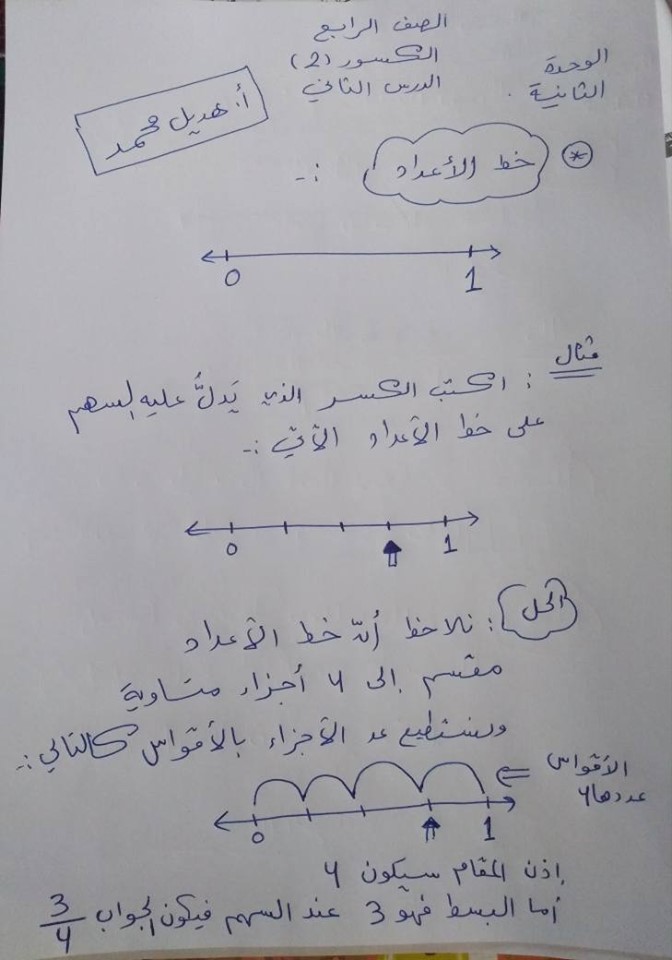 الصف الرابع
الوحدة الثانية.
الكسور (2)
الدرس الثاني
أ. هديل محمد
* خط الأعداد :-
0 1
مثال : اكتب الكسر الذي يَدلُّ عليه السهم
على خط الأعداد الآتي :-
0 1
الحل : نلاحظ أنّ خط الأعداد
مقسم إلى 4 أجزاء متساوية
ونستطيع عد الأجزاء بالأقواس كالتالي :-
الأقواس
عددها 4
0 1
إذن المقام سيكون 4
أما البسط فهو 3 عند السهم فيكون الجواب 3/4